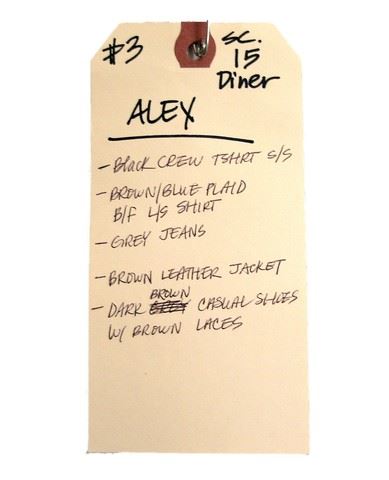 #3
SC.
15
Diner
ALEX
- Black CREW TSHRT S/S
- BROWN/BLUE PLAID
B/F L/S SHIRT
- GREY JEANS
- BROWN LEATHER JACKET
- DARK BROWN CASUAL SHOES
W/ BROWN LACES